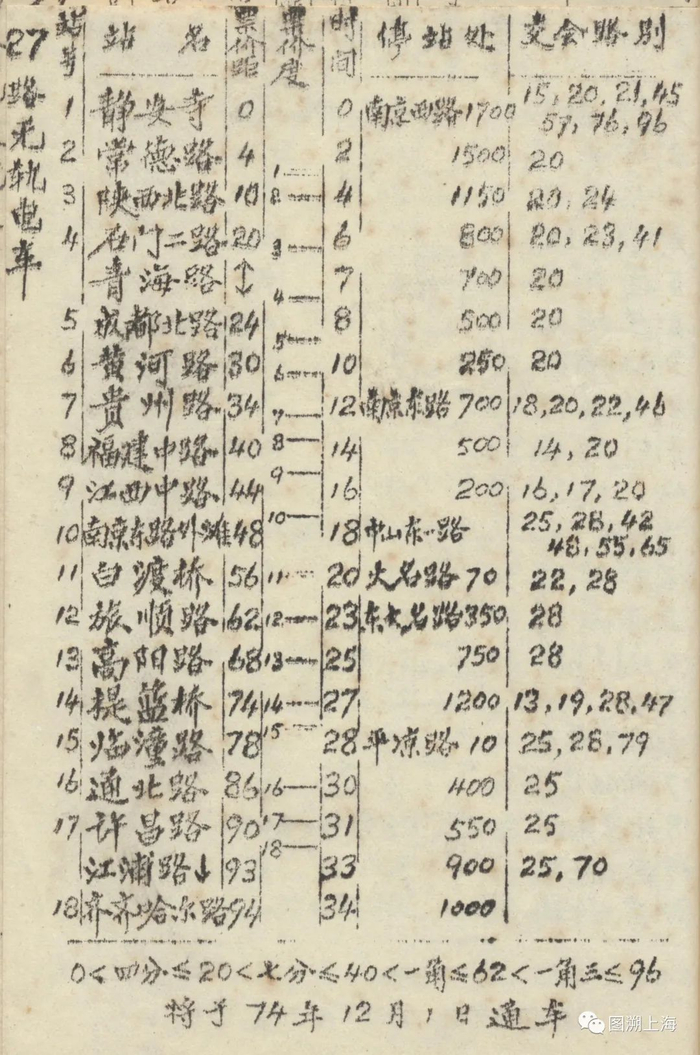 27路无轨电车
站号 站名 票价距 票价度 时间 停站处 交会路别
1 静安寺 0 0 南京西路1700 15, 20, 21, 45
57, 76, 96
2 常德路 4 1 2 1500 20
3 陕西北路 10 2 4 1150 20, 24
4 石门二路 20 3 6 800 20, 23, 41
青海路 ↕ 4 7 700 20
5 成都北路 24 5 8 500 20
6 黄河路 30 6 10 250 20
7 贵州路 34 7 12 南京东路 700 18, 20, 22, 46
8 福建中路 40 8 14 500 14, 20
9 江西中路 44 9 16 200 16, 17, 20
10 南京东路外滩 48 10 18 中山东一路 25, 28, 42
48, 55, 65
11 白渡桥 56 11 20 大名路 70 22, 28
12 旅顺路 62 12 23 东大名路 350 28
13 高阳路 68 13 25 750 28
14 提篮桥 74 14 27 1200 13, 19, 28, 47
15 临潼路 78 15 28 平凉路 10 25, 28, 79
16 通北路 86 16 30 400 25
17 许昌路 90 17 31 550 25
江浦路↓ 93 18 33 900 25, 70
18 齐齐哈尔路 94 34 1000
0<四分≤20<七分≤40<一角≤62<一角三≤96
将于74年12月1日通车
图溯上海